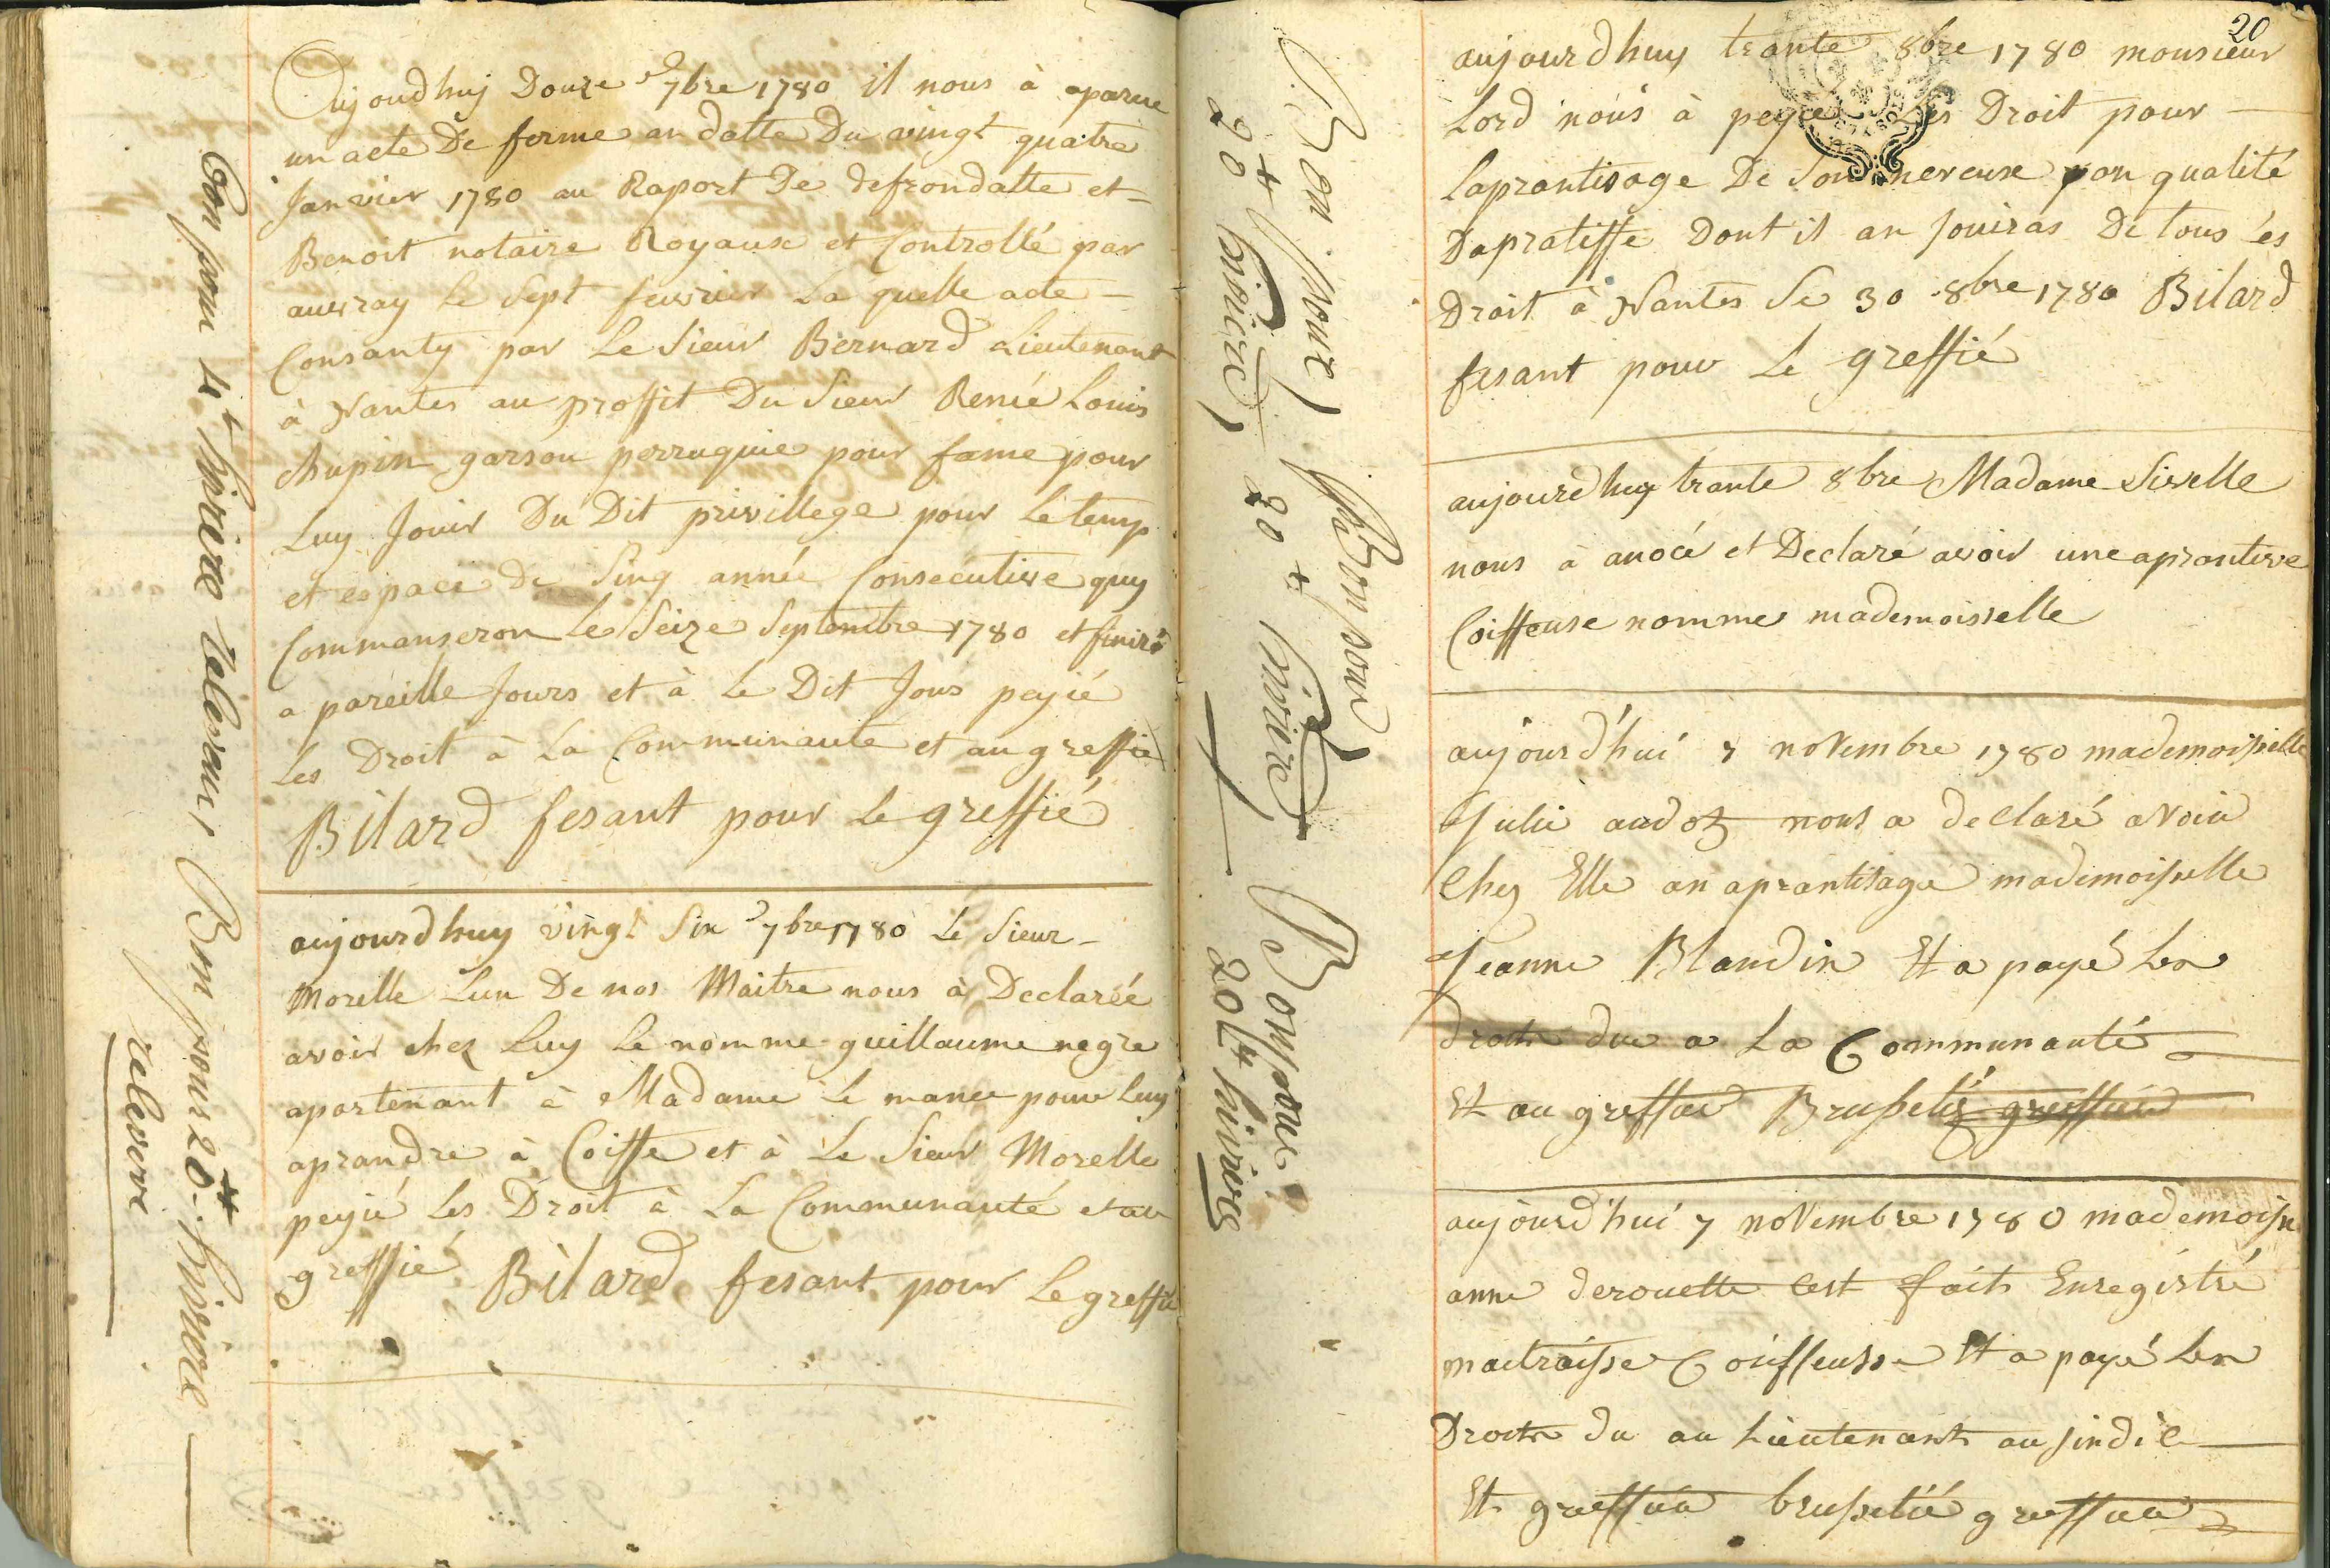 Aujoudhuy Douze 7bre 1780 il nous à aparue
un acte De ferme an datte Du vingt quatre
Janvier 1780 au Raport De defrondatte et
Benoit notaire Royaux et Controllé par
auvray le Sept feuvrier La quelle acte
Consanty par Le Sieur Bernard Lieutenant
à Nantes au proffit Du Sieur Renée Louis
chupin garson perruquie pour fame pour
Luy Jouir Du Dit privillege pour Le temp
et espace De Sinq année Consecutive quy
Commanseron le Seize Septembre 1780 et finirö
a pareille Jours et à Le Dit Jous peyié
Les Droit à La Communaute et au greffie
Bilard fesant pour Le greffié
aujourdhuy vingt Six 7bre 1780 Le Sieur
Morelle Lun De nos Maitre nous à Declarée
avoir chez Luy Le nomme guillaume negre
apartenant à Madame Le mance pour Luy
aprandre à Coiffe et à Le Sieur Morelle
peyié Les Droit à La Communauté et au
greffié Bilard fesant pour Le greffié
Bon pour 4 livre
Bon pour 20 livre
relevere
Bon pour
20 livire
Bon pour
20 livire
Bon pour
20 livires
20
aujourdhuy trante 8bre 1780 monsieur
Lord nous à peyée Les Droit pour
Laprantisage De Son nereuse pon qualité
Dapratiffe Dont il an Jouiras De tous Lés
Droit à Nantes Le 30 8bre 1780 Bilard
fesant pour Le greffié
aujourdhuy trante 8bre Madame Sirelle
nous à anocé et Declaré avoir une aprantive
Coiffeuse nomme mademoisselle
aujourd'hui 7 novembre 1780 mademoisselle
Julie audoz nous a declaré avoir
Chez Elle an aprantisage mademoiselle
Jeanne Blandin Et a payé Les
droits due a La Communauté
Et au greffier Brupetié greffier
aujourd'hui 7 novembre 1780 mademoise
anne derouette cest fait Enregistré
maitraisse Coiffeusse Et a payé Les
Droits du au Lieutenant au sindic
Et greffiée brupetié greffiée